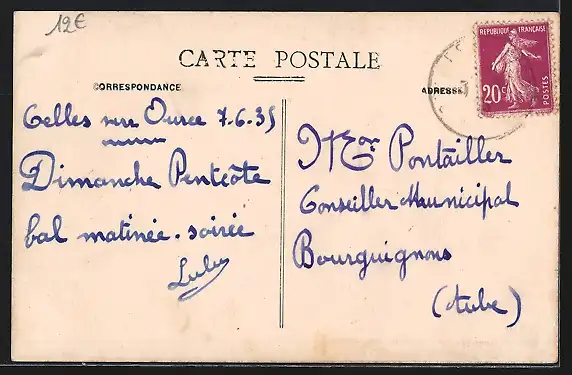 12€
CARTE POSTALE
CORRESPONDANCE
ADRESSE
REPUBLIQUE FRANÇAISE
20c
POSTES
Celles sur Ource 7-6-35
Dimanche Pentcôte
bal matinée. soirée
Lulu
Mr Pontailler
Conseiller Municipal
Bourguignons
(Aube)